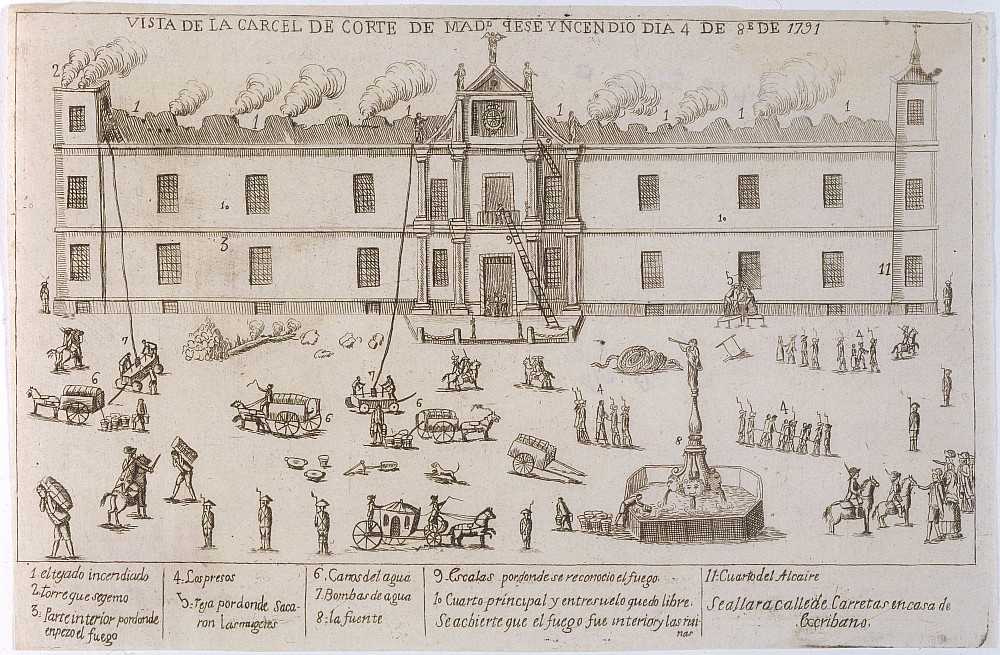 VISTA DE LA CARCEL DE CORTE DE MAD.D QESE YNCENDIO DIA 4 DE 8.E DE 1791
2
1
1
1
1
1
1
1
1o
1o
3
9
9
5
11
7
7
6
6
6
4
4
4
8
1 el tejado incendiado
2 torre que seqemo
3: Parte interior pordonde
enpezo el fuego
4: Los presos
5: reja pordonde Saca-
ron las mugeres
6: Carros del agua
7: Bombas de agua
8: la fuente
9: Escalas pordonde se reconocio el fuego.
1o Cuarto principal y entresuelo quedo libre.
Se acbierte que el fuego fue interior y las rui
nas
11: Cuarto del Alcaire
Seallara calle de Carretas encasa de
Escribano.